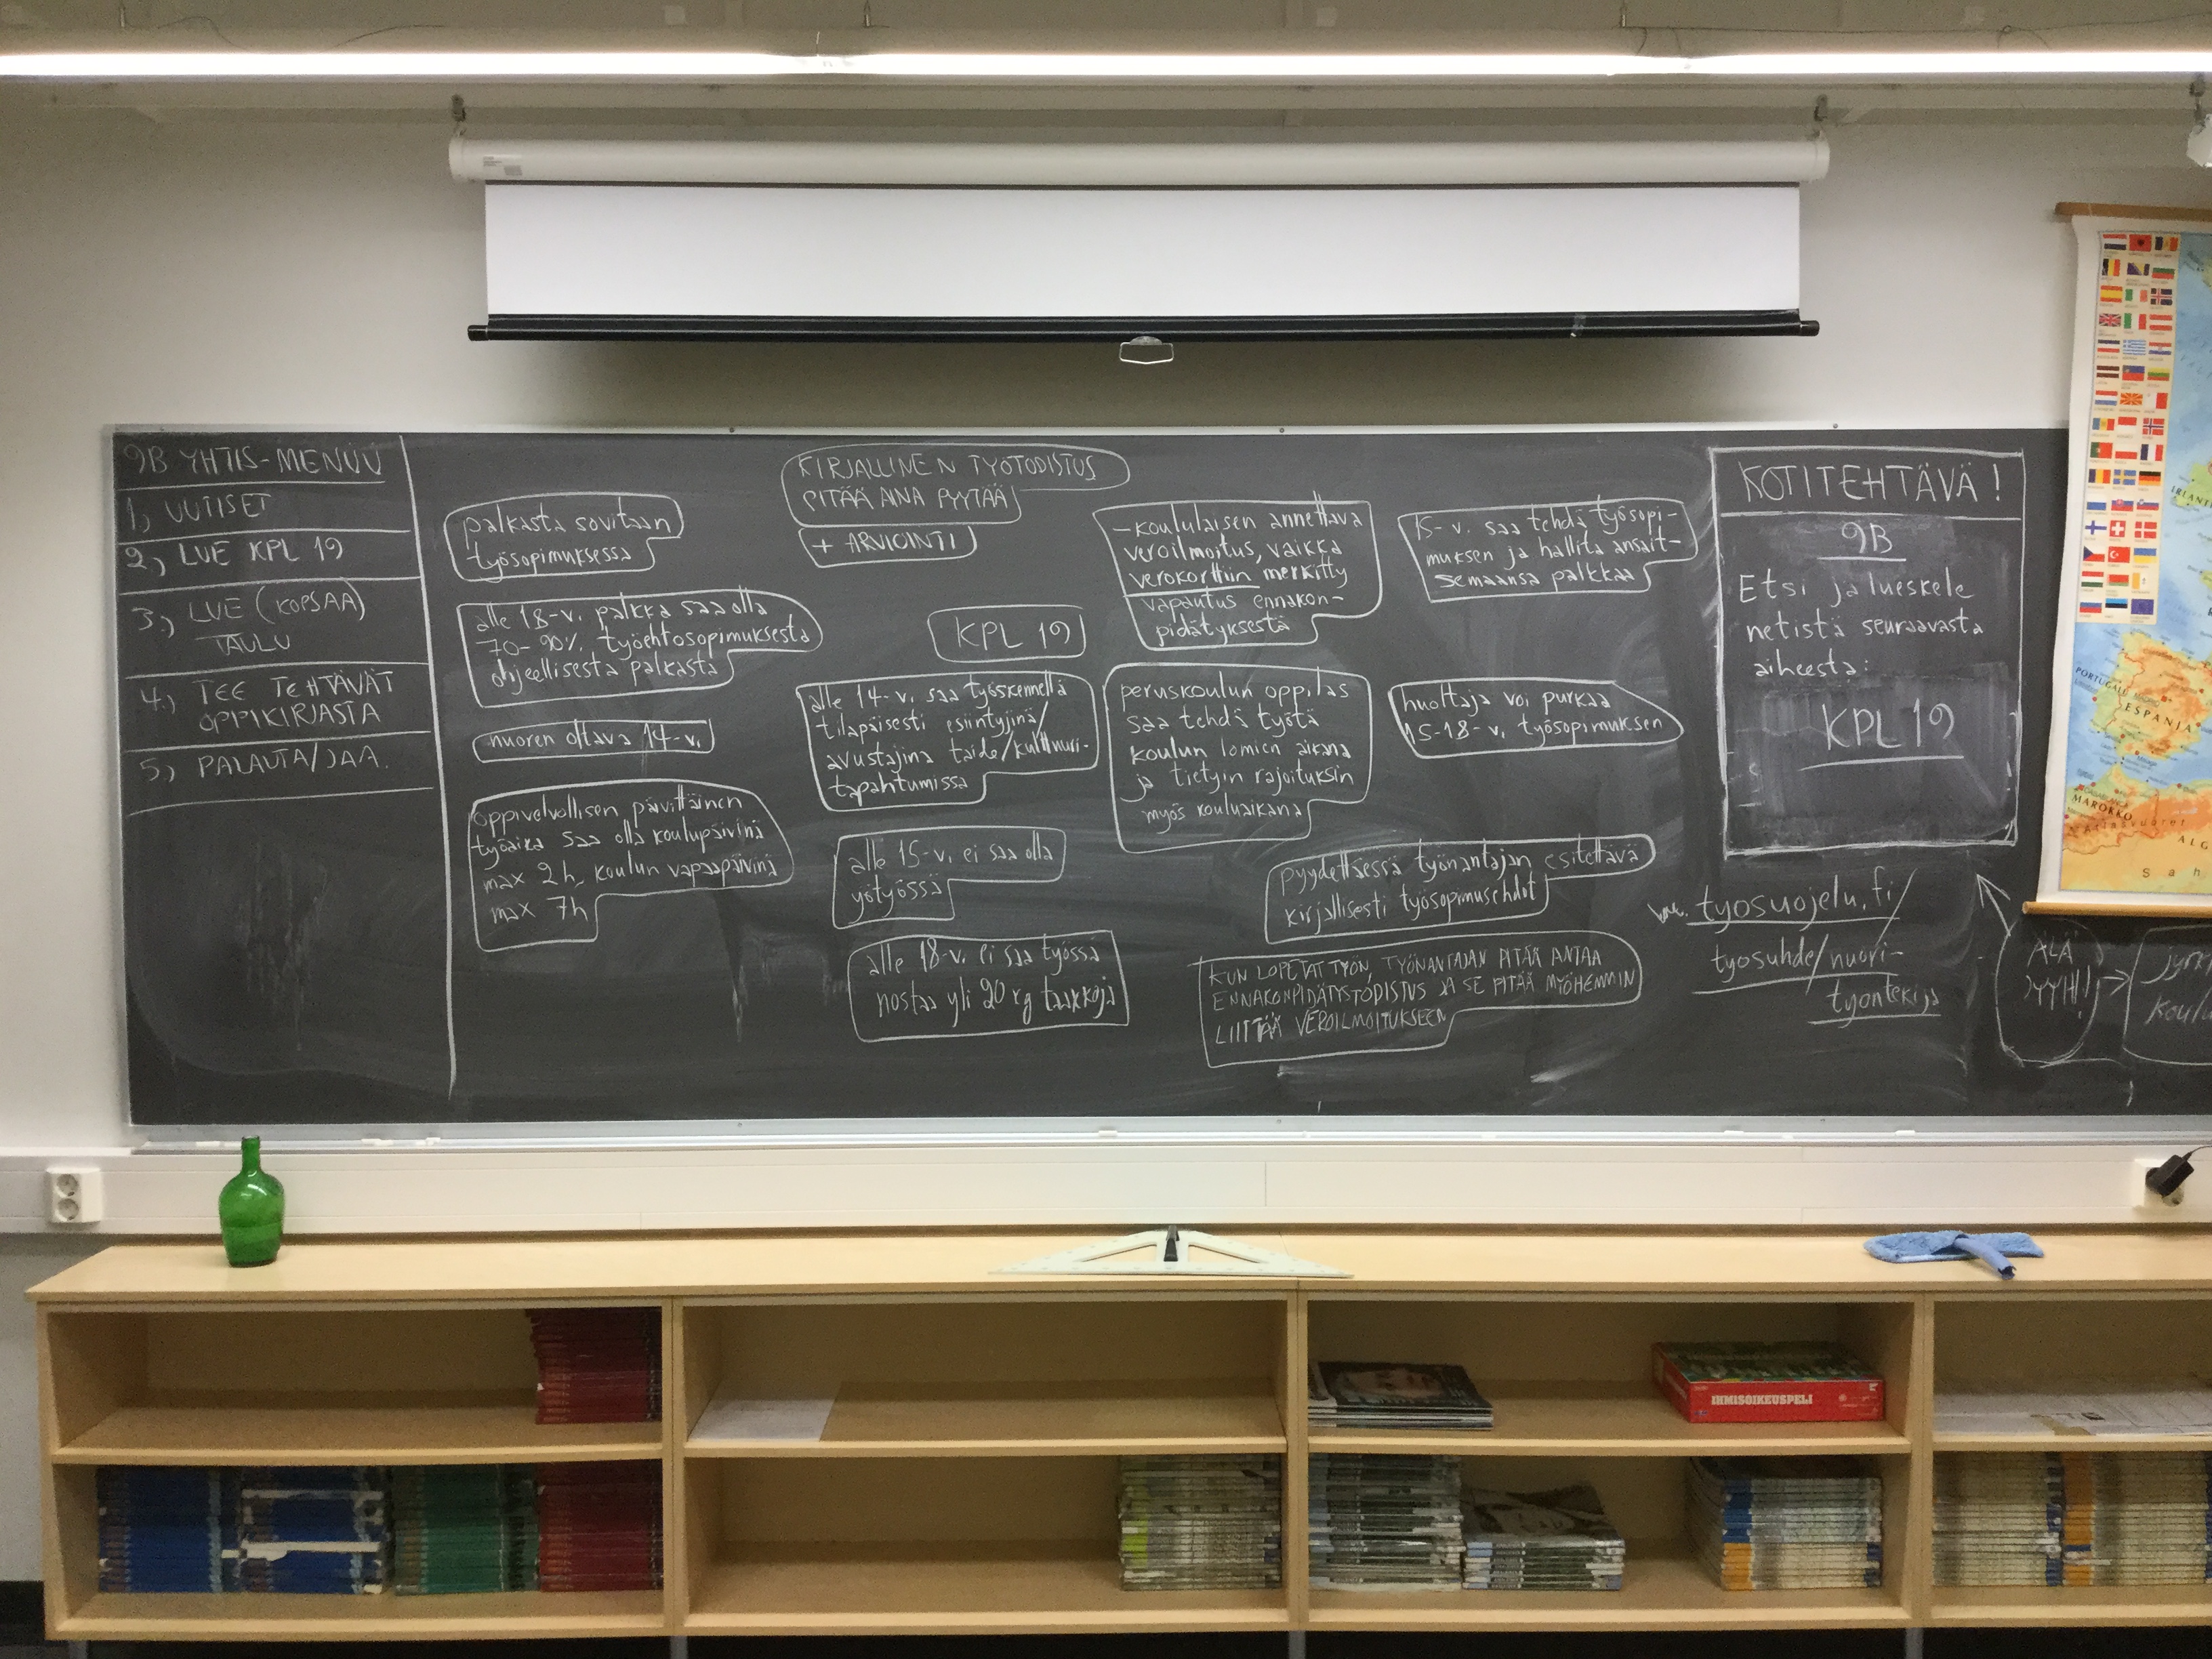 9B YHTIS-MENUU
1) UUTISET
2) LUE KPL 19
3.) LUE (KOPSAA)
TAULU
4.) TEE TEHTÄVÄT
OPPIKIRJASTA
5) PALAUTA/JAA.
palkasta sovitaan
työsopimuksessa
alle 18-v. palkka saa olla
70-90% työehtosopimuksesta
ohjeellisesta palkasta
nuoren oltava 14-v.
oppivelvollisen päivittäinen
työaika saa olla koulupäivinä
max 2h, koulun vapaapäivinä
max 7h
KIRJALLINEN TYÖTODISTUS
PITÄÄ AINA PYYTÄÄ
+ ARVIOINTI
KPL 19
alle 14-v. saa työskennellä
tilapäisesti esiintyjinä/
avustajina taide/kulttuuri-
tapahtumissa
alle 15-v. ei saa olla
yötyössä
alle 18-v. ei saa työssä
nostaa yli 20 kg taakkoja
-koululaisen annettava
veroilmoitus, vaikka
verokorttiin merkitty
vapautus ennakon-
pidätyksestä
peruskoulun oppilas
saa tehdä työtä
koulun lomien aikana
ja tietyin rajoituksin
myös kouluaikana
15-v. saa tehdä työsopi-
muksen ja hallita ansait-
semaansa palkkaa
huoltaja voi purkaa
15-18-v. työsopimuksen
pyydettäessä työnantajan esitettävä
kirjallisesti työsopimusehdot
KUN LOPETAT TYÖN, TYÖNANTAJAN PITÄÄ ANTAA
ENNAKONPIDÄTYSTODISTUS JA SE PITÄÄ MYÖHEMMIN
LIITTÄÄ VEROILMOITUKSEEN
KOTITEHTÄVÄ!
9B
Etsi ja lueskele
netistä seuraavasta
aiheesta:
KPL 19
tyosuojelu.fi/
tyosuhde/nuori-
tyontekija
ÄLÄ
PORTUGALI
ESPANJA
MAROKKO
IHMISOIKEUSPELI